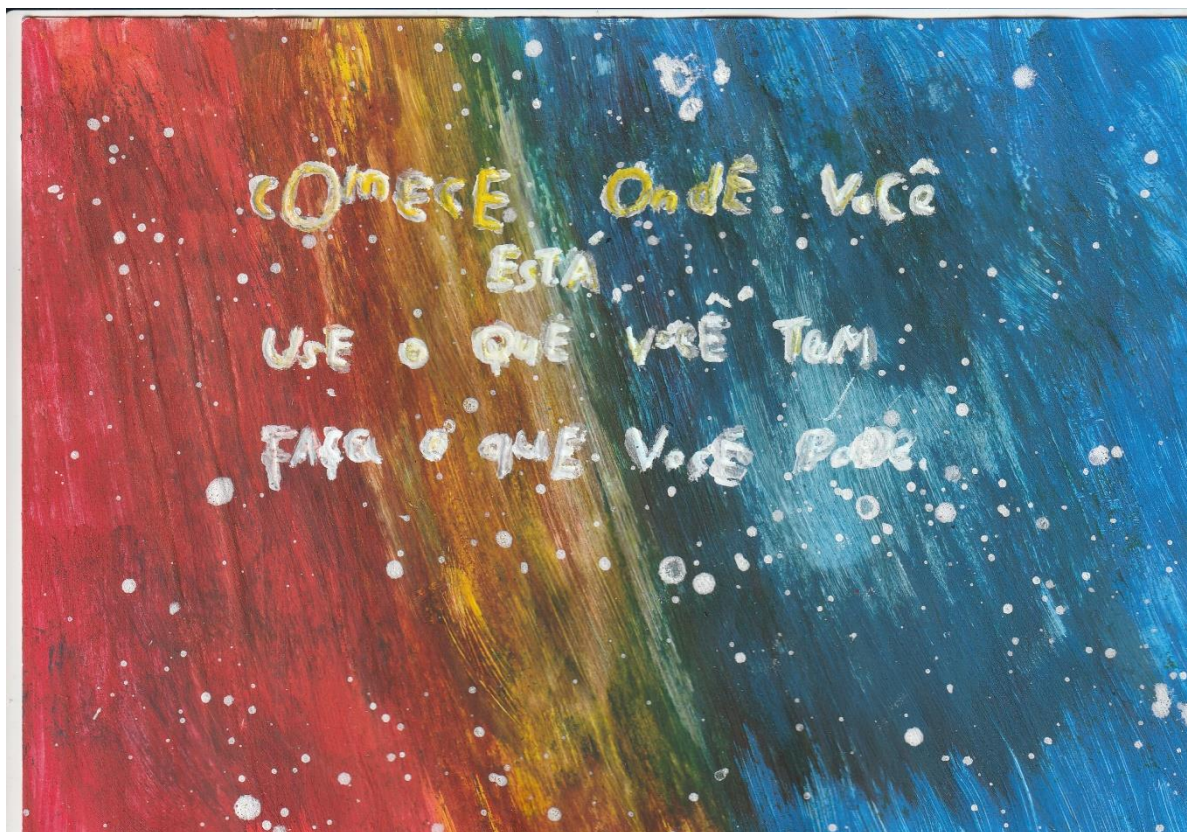 COmECE OndE VoCÊ
EsTÁ,
UsE o QuE VocÊ TEM
FAÇa o quE VocÊ PodE.